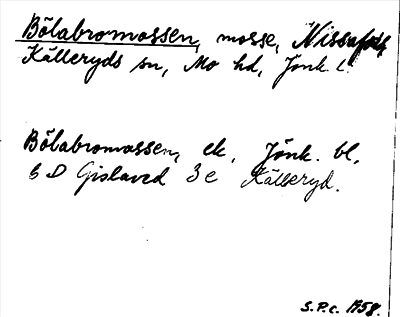 Bölabromossen, mosse, Nissafors
Källeryds sn, Mo hd, Jönk. l.
Bölabromossen, ek. Jönk. bl,
6 D Gislaved 3 e Källeryd.
S.P.c. 1958.